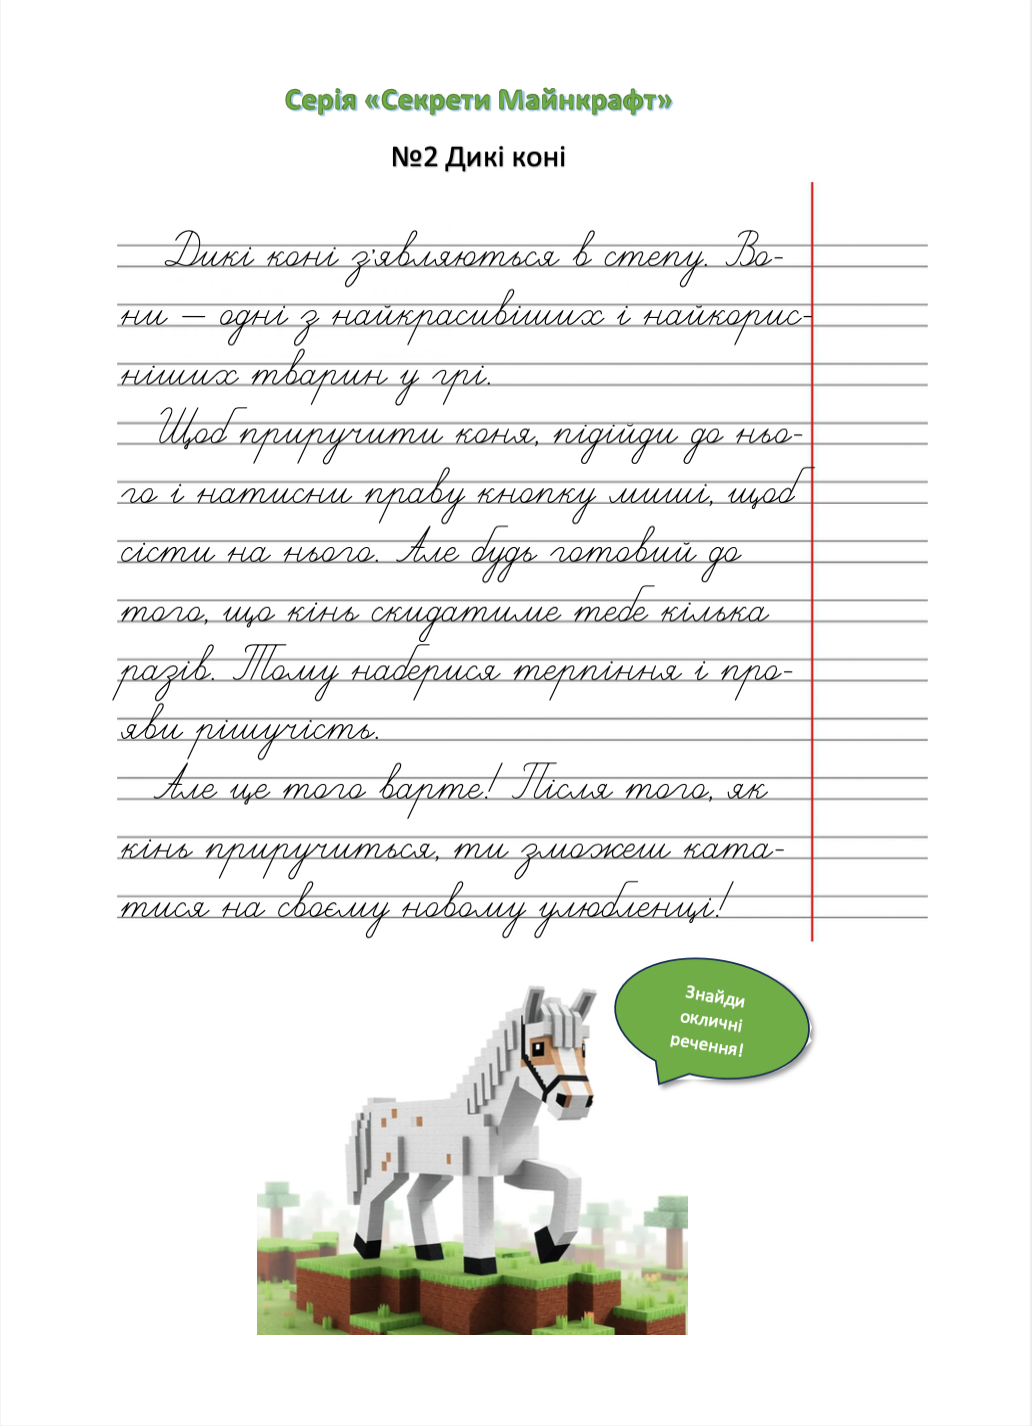 Серія «Секрети Майнкрафт»
№2 Дикі коні
Дикі коні з'являються в степу. Во-
ни — одні з найкрасивіших і найкорис-
ніших тварин у грі.
Щоб приручити коня, підійди до ньо-
го і натисни праву кнопку миші, щоб
сісти на нього. Але будь готовий до
того, що кінь скидатиме тебе кілька
разів. Тому наберися терпіння і про-
яви рішучість.
Але це того варте! Після того, як
кінь приручиться, ти зможеш ката-
тися на своєму новому улюбленці!
Знайди
окличні
речення!